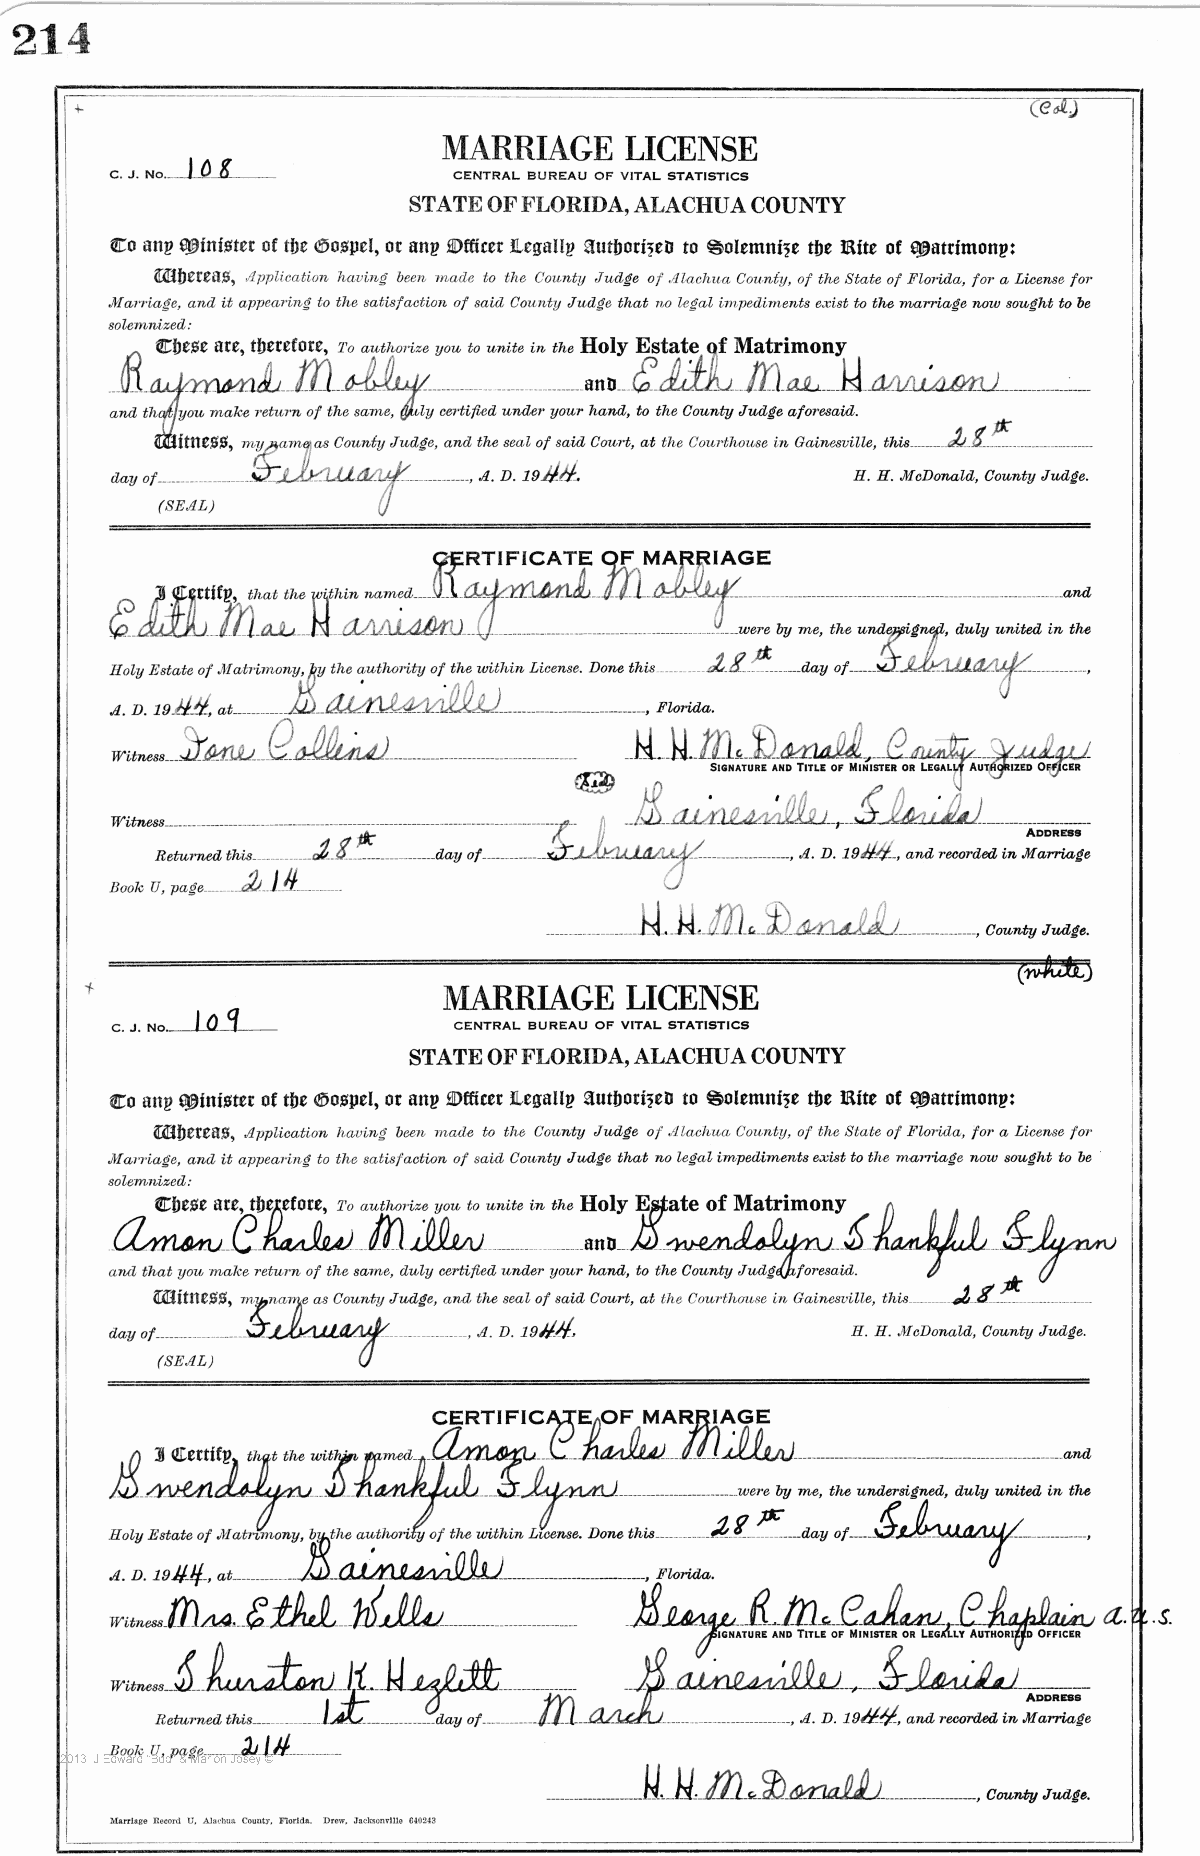 214
(Col.)
MARRIAGE LICENSE
C. J. No. 108
CENTRAL BUREAU OF VITAL STATISTICS
STATE OF FLORIDA, ALACHUA COUNTY
To any Minister of the Gospel, or any Officer Legally Authorized to Solemnize the Rite of Matrimony:
Whereas, Application having been made to the County Judge of Alachua County, of the State of Florida, for a License for
Marriage, and it appearing to the satisfaction of said County Judge that no legal impediments exist to the marriage now sought to be
solemnized:
These are, therefore, To authorize you to unite in the Holy Estate of Matrimony
Raymond Mobley and Edith Mae Harrison
and that you make return of the same, duly certified under your hand, to the County Judge aforesaid.
Witness, my name as County Judge, and the seal of said Court, at the Courthouse in Gainesville, this 28th
day of February, A. D. 1944. H. H. McDonald, County Judge.
(SEAL)
CERTIFICATE OF MARRIAGE
I Certify, that the within named Raymond Mobley and
Edith Mae Harrison were by me, the undersigned, duly united in the
Holy Estate of Matrimony, by the authority of the within License. Done this 28th day of February,
A. D. 1944, at Gainesville, Florida.
Witness Ione Collins H. H. McDonald, County Judge
SIGNATURE AND TITLE OF MINISTER OR LEGALLY AUTHORIZED OFFICER
Gainesville, Florida
Witness
ADDRESS
Returned this 28th day of February, A. D. 1944, and recorded in Marriage
Book U, page 214
H. H. McDonald, County Judge.
(white)
MARRIAGE LICENSE
C. J. No. 109
CENTRAL BUREAU OF VITAL STATISTICS
STATE OF FLORIDA, ALACHUA COUNTY
To any Minister of the Gospel, or any Officer Legally Authorized to Solemnize the Rite of Matrimony:
Whereas, Application having been made to the County Judge of Alachua County, of the State of Florida, for a License for
Marriage, and it appearing to the satisfaction of said County Judge that no legal impediments exist to the marriage now sought to be
solemnized:
These are, therefore, To authorize you to unite in the Holy Estate of Matrimony
Amon Charles Miller and Gwendolyn Thankful Flynn
and that you make return of the same, duly certified under your hand, to the County Judge aforesaid.
Witness, my name as County Judge, and the seal of said Court, at the Courthouse in Gainesville, this 28th
day of February, A. D. 1944. H. H. McDonald, County Judge.
(SEAL)
CERTIFICATE OF MARRIAGE
I Certify, that the within named, Amon Charles Miller and
Gwendolyn Thankful Flynn were by me, the undersigned, duly united in the
Holy Estate of Matrimony, by the authority of the within License. Done this 28th day of February,
A. D. 1944, at Gainesville, Florida.
Witness Mrs. Ethel Wells George R. McCahan, Chaplain a.u.s.
SIGNATURE AND TITLE OF MINISTER OR LEGALLY AUTHORIZED OFFICER
Witness Thurston K. Hezlett Gainesville, Florida
ADDRESS
Returned this 1st day of March, A. D. 1944, and recorded in Marriage
Book U, page 214
2013 J Edward "Bud" & Marion Josey ©
H. H. McDonald, County Judge.
Marriage Record U, Alachua County, Florida. Drew, Jacksonville 640243